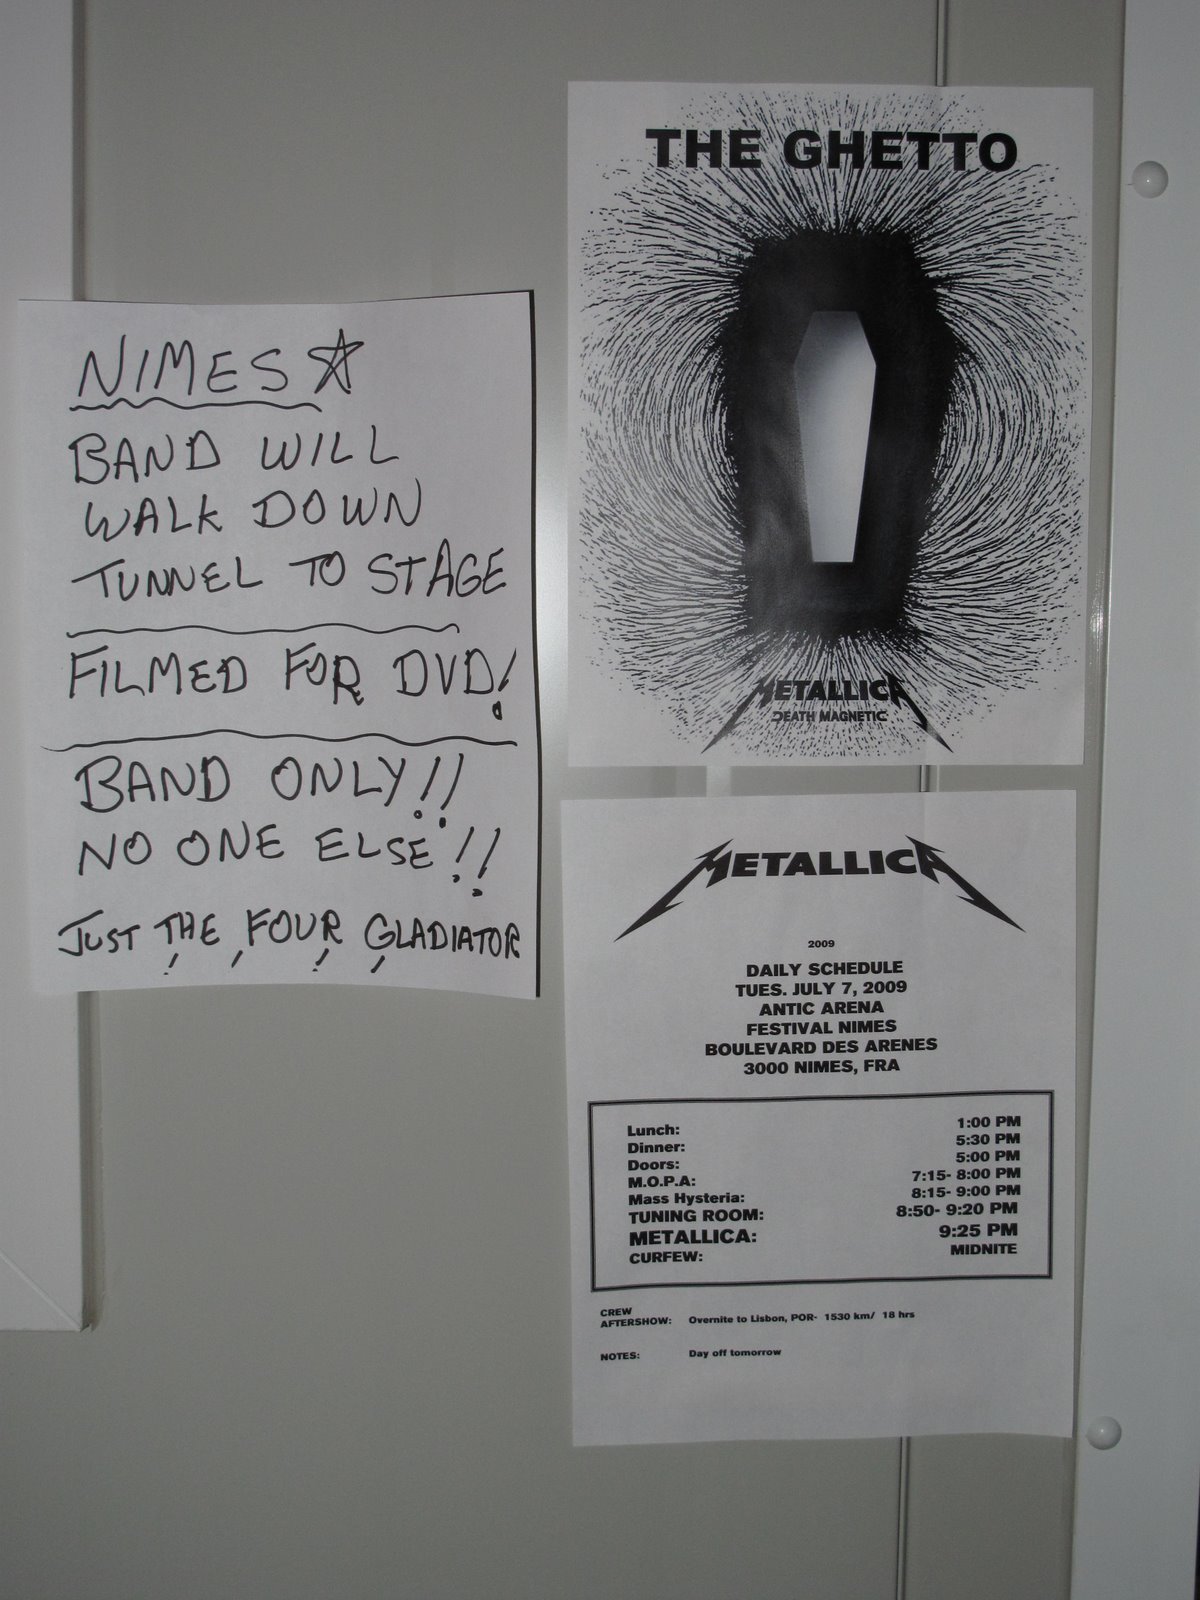 NIMES
BAND WILL
WALK DOWN
TUNNEL TO STAGE
FILMED FOR DVD!
BAND ONLY!!
NO ONE ELSE!!
JUST THE FOUR GLADIATOR
THE GHETTO
METALLICA
DEATH MAGNETIC
METALLICA
2009
DAILY SCHEDULE
TUES. JULY 7, 2009
ANTIC ARENA
FESTIVAL NIMES
BOULEVARD DES ARENES
3000 NIMES, FRA
Lunch: 1:00 PM
Dinner: 5:30 PM
Doors: 5:00 PM
M.O.P.A: 7:15- 8:00 PM
Mass Hysteria: 8:15- 9:00 PM
TUNING ROOM: 8:50- 9:20 PM
METALLICA: 9:25 PM
CURFEW: MIDNITE
CREW
AFTERSHOW: Overnite to Lisbon, POR- 1530 km/ 18 hrs
NOTES: Day off tomorrow